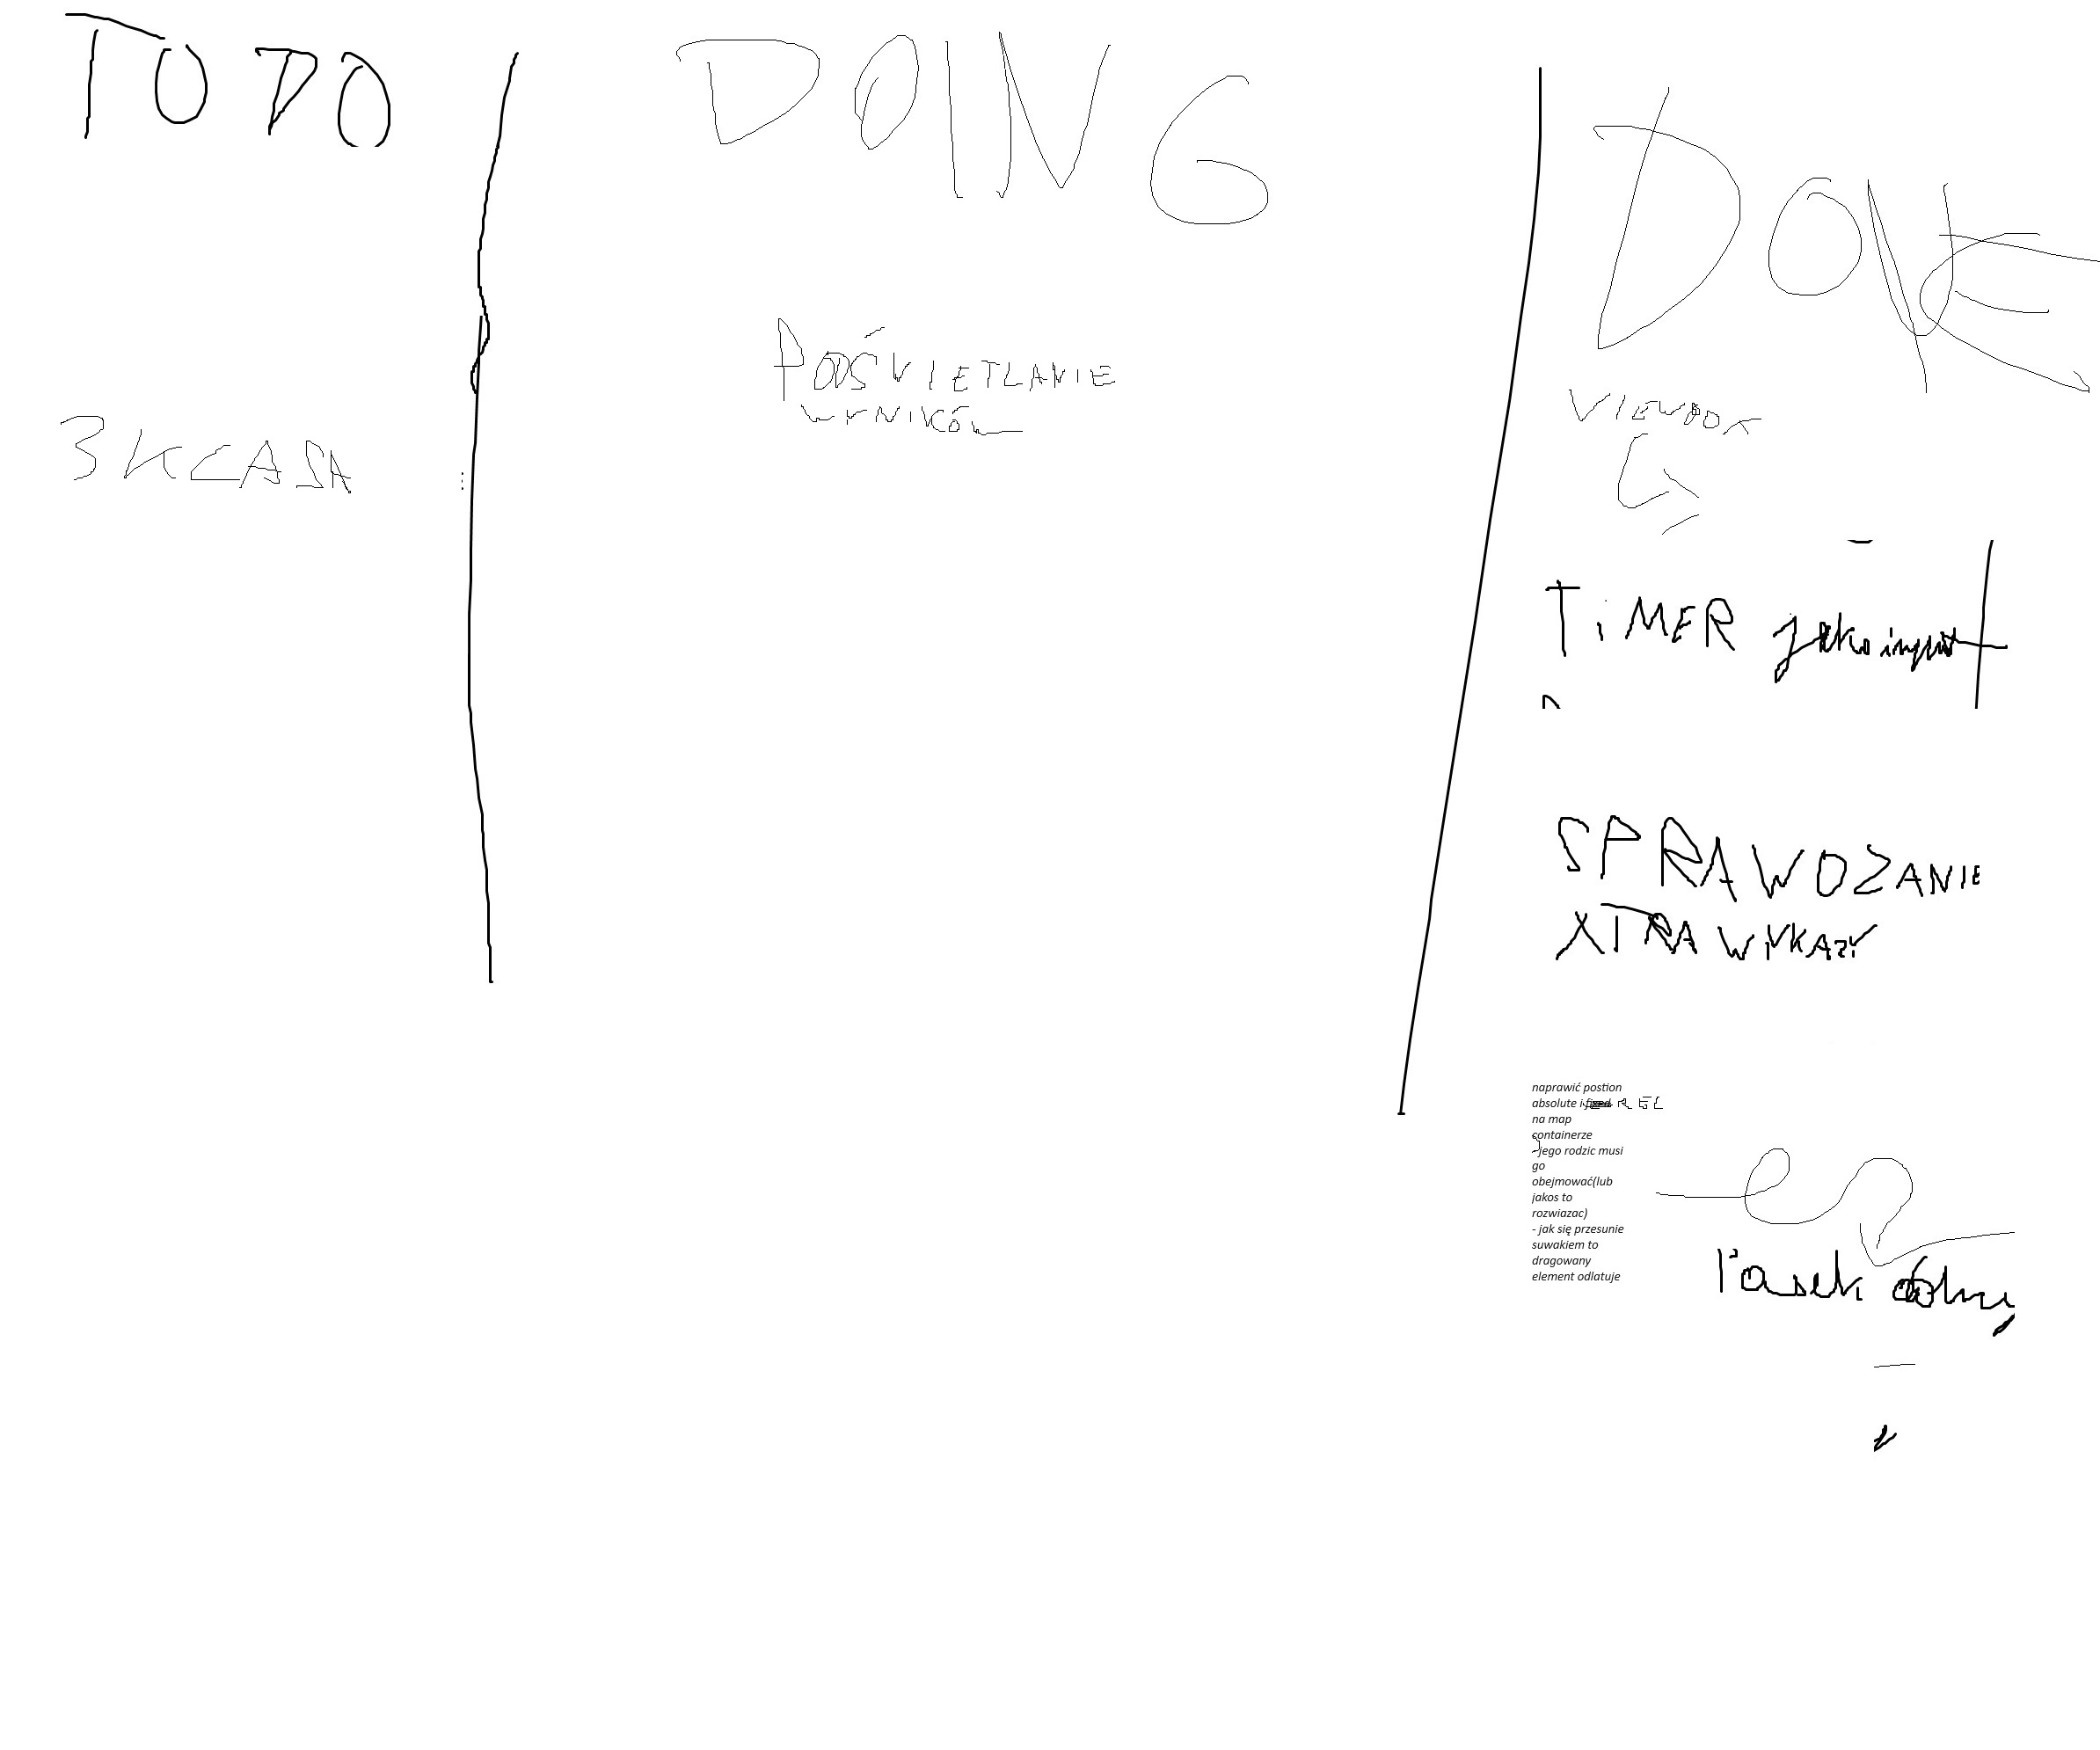 TODO
DOING
DONE
3 KLASA
PODŚWIETLANIE
WYNIKÓW
VIEWBOX
TiMER jako input
SPRAWOZDANIE
XTRA WYKAZY
naprawić postion
absolute i REL
na map
containerze
-jego rodzic musi
go
obejmować(lub
jakos to
rozwiazac)
- jak się przesunie
suwakiem to
dragowany
element odlatuje
Pasek dolny